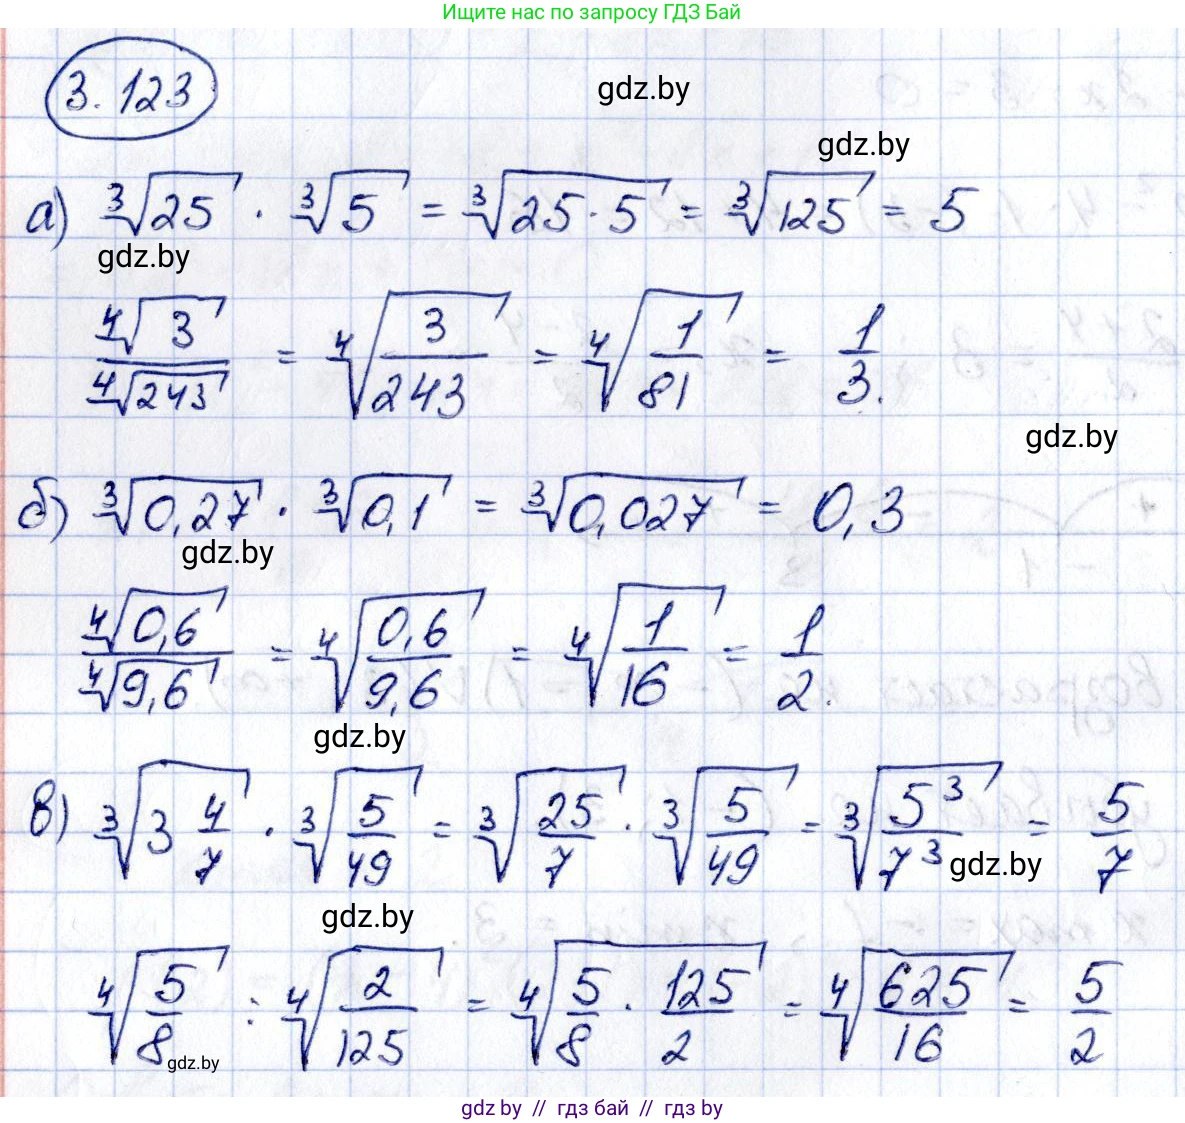 Ищите нас по запросу ГДЗ Бай
3.123
gdz.by
gdz.by
а) ∛25 · ∛5 = ∛(25·5) = ∛125 = 5
gdz.by
∜3/∜243 = ∜(3/243) = ∜(1/81) = 1/3.
gdz.by
б) ∛0,27 · ∛0,1 = ∛0,027 = 0,3
gdz.by
∜0,6/∜9,6 = ∜(0,6/9,6) = ∜(1/16) = 1/2.
gdz.by
в) ∛(3 4/7) · ∛(5/49) = ∛(25/7) · ∛(5/49) = ∛(5³/7³) = 5/7
gdz.by
gdz.by
∜(5/8) : ∜(2/125) = ∜(5/8 · 125/2) = ∜(625/16) = 5/2
gdz.by
gdz.by // гдз бай // гдз by